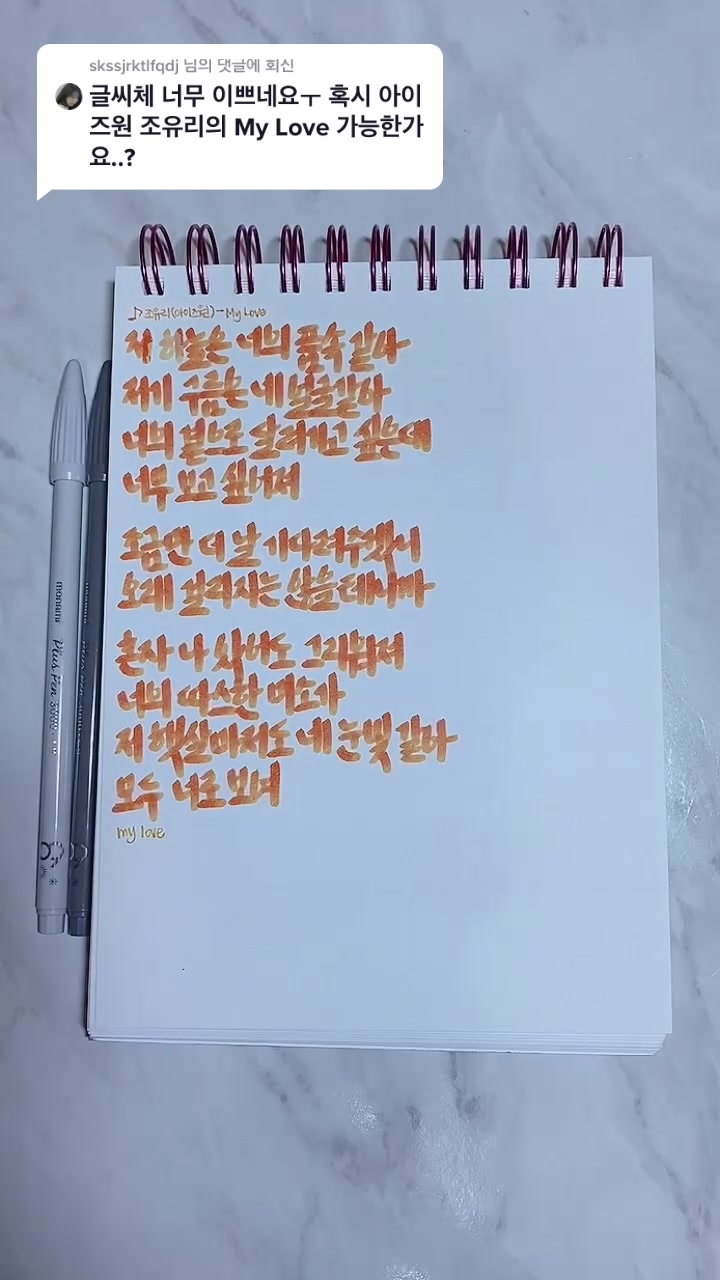 skssjrktlfqdj 님의 댓글에 회신
글씨체 너무 이쁘네요ㅜ 혹시 아이
즈원 조유리의 My Love 가능한가
요..?
♪ 조유리(아이즈원) - My Love
저 하늘은 너의 품속 같아
저기 구름은 네 날개같아
너의 곁으로 달려가고 싶은데
너무 보고 싶어져
조금만 더 날 기다려주겠니
오래 걸리지는 않을 테니까
혼자 나 있어도 그리워져
너의 따스한 미소가
저 햇살마저도 네 눈빛 같아
모두 너로 보여
my love
monami Plus Pen 3000